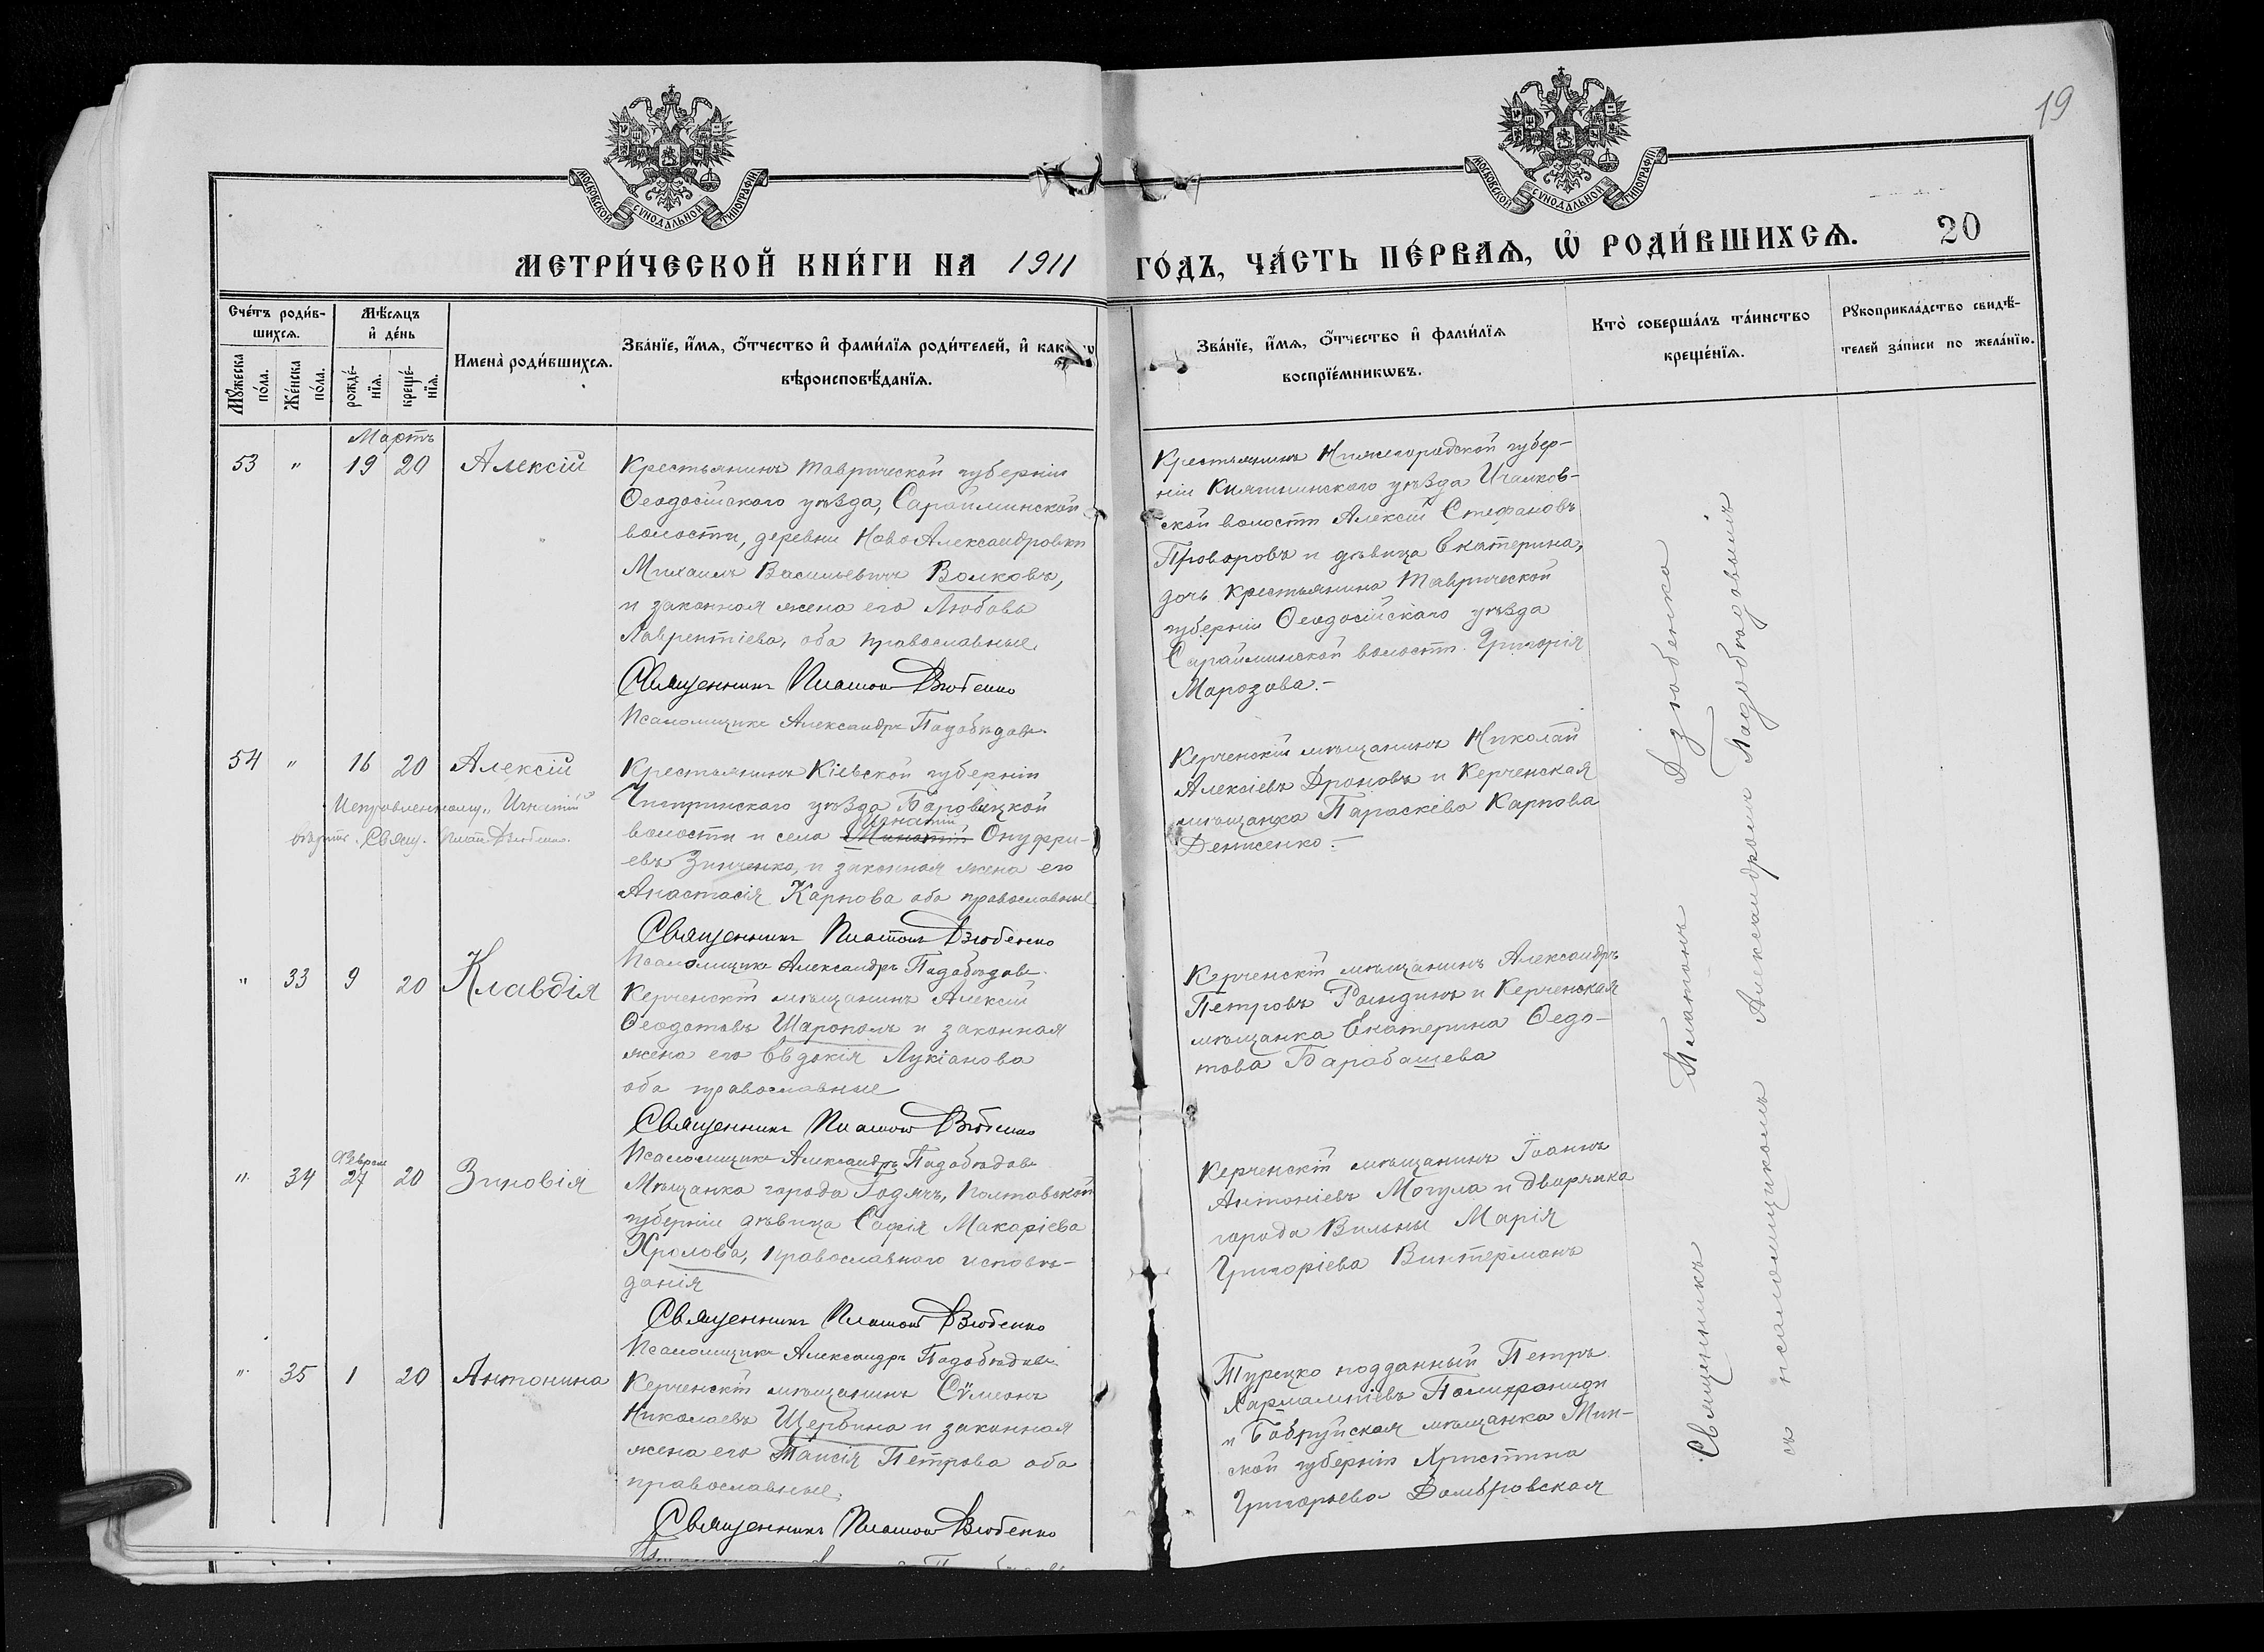 19
МОСКОВСКОЙ СѴНОДАЛЬНОЙ ТИПОГРАФІИ
МОСКОВСКОЙ СѴНОДАЛЬНОЙ ТИПОГРАФІИ
МЕТРИ́ЧЕСКОЙ КНИ́ГИ НА 1911
ГО́ДЪ, ЧА́СТЬ ПЕ́РВАѦ, Ѡ҆ РОДИ́ВШИХСѦ. 20
Сче́тъ роди́в-
шихсѧ.
Мꙋ́жеска
по́ла.
Же́нска
по́ла.
Мѣ́сѧцъ
и҆ де́нь
рожде́-
нїѧ.
креще́-
нїѧ.
И҆мена̀ роди́вшихсѧ.
Зва́нїе, и҆́мѧ, ѻ҆́тчество и҆ фами́лїѧ роди́телей, и҆
вѣроисповѣ́данїѧ.
Зва́нїе, и҆́мѧ, ѻ҆́тчество и҆ фами́лїѧ
воспрїе́мникѡвъ.
Кто̀ соверша́лъ та́инство
креще́нїѧ.
Рꙋкоприкла́дство свидѣ́-
телей за́писи по жела́нїю.
Мартъ
53 " 19 20 Алексій
Крестьянинъ Таврической губерніи
Ѳеодосійскаго уѣзда, Сарайминской
волости, деревни НовоАлександровки
Михаилъ Васильевичъ Волковъ,
и законная жена его Любовь
Лаврентіева, оба православные.
Священникъ Платонъ Дзюбенко
Псаломщикъ Александръ Подобѣдовъ.
Крестьянинъ Нижегородской губер-
ніи Княгининскаго уѣзда Игалков-
ской волости Алексій Стефановъ
Проворовъ и дѣвица Екатерина,
дочь крестьянина Таврической
губерніи Ѳеодосійскаго уѣзда
Сарайминской волости Григорія
Марозова.-
54 " 16 20 Алексій
Исправленному „Игнатій"
вѣрить. Свящ. Плат. Дзюбенко.
Крестьянинъ Кіевской губерніи
Чигиринскаго уѣзда Боровицкой
Игнатій
волости и села Онуфри-
евъ Зинченко, и законная жена его
Анастасія Карпова оба православные
Священникъ Платонъ Дзюбенко
Псаломщикъ Александръ Подобѣдовъ.
Керченскій мѣщанинъ Николай
Алексіевъ Дроновъ и Керченская
мѣщанка Параскева Карпова
Денисенко.-
" 33 9 20 Клавдія
Керченскій мѣщанинъ Алексій
Ѳеодотовъ Шарополъ и законная
жена его Евдокія Лукіанова
оба православные
Священникъ Платонъ Дзюбенко
Псаломщикъ Александръ Подобѣдовъ
Керченскій мѣщанинъ Александръ
Петровъ и Керченская
мѣщанка Екатерина Ѳедо-
това Барабашева
Февраля
" 34 27 20 Зиновія
Мѣщанка города Гадячъ, Полтавской
губерніи дѣвица Софія Макаріева
Хролова, православнаго исповѣ-
данія
Священникъ Платонъ Дзюбенко
Псаломщикъ Александръ Подобѣдовъ.
Керченскій мѣщанинъ Іоаннъ
Антоніевъ Могула и дворянка
города Вильны Марія
Григоріева Винтерманъ
" 35 1 20 Антонина
Керченскій мѣщанинъ Сѵмеонъ
Николаевъ Щербина и законная
жена его Таисія Петрова оба
православные.
Священникъ Платонъ Дзюбенко
Турецко подданный Петръ
и Бобруйская мѣщанка Мин-
ской губерніи Христина
Григорьева Домбровская
Священникъ Платонъ Дзюбенко
съ псаломщикомъ Александромъ Подобѣдовымъ